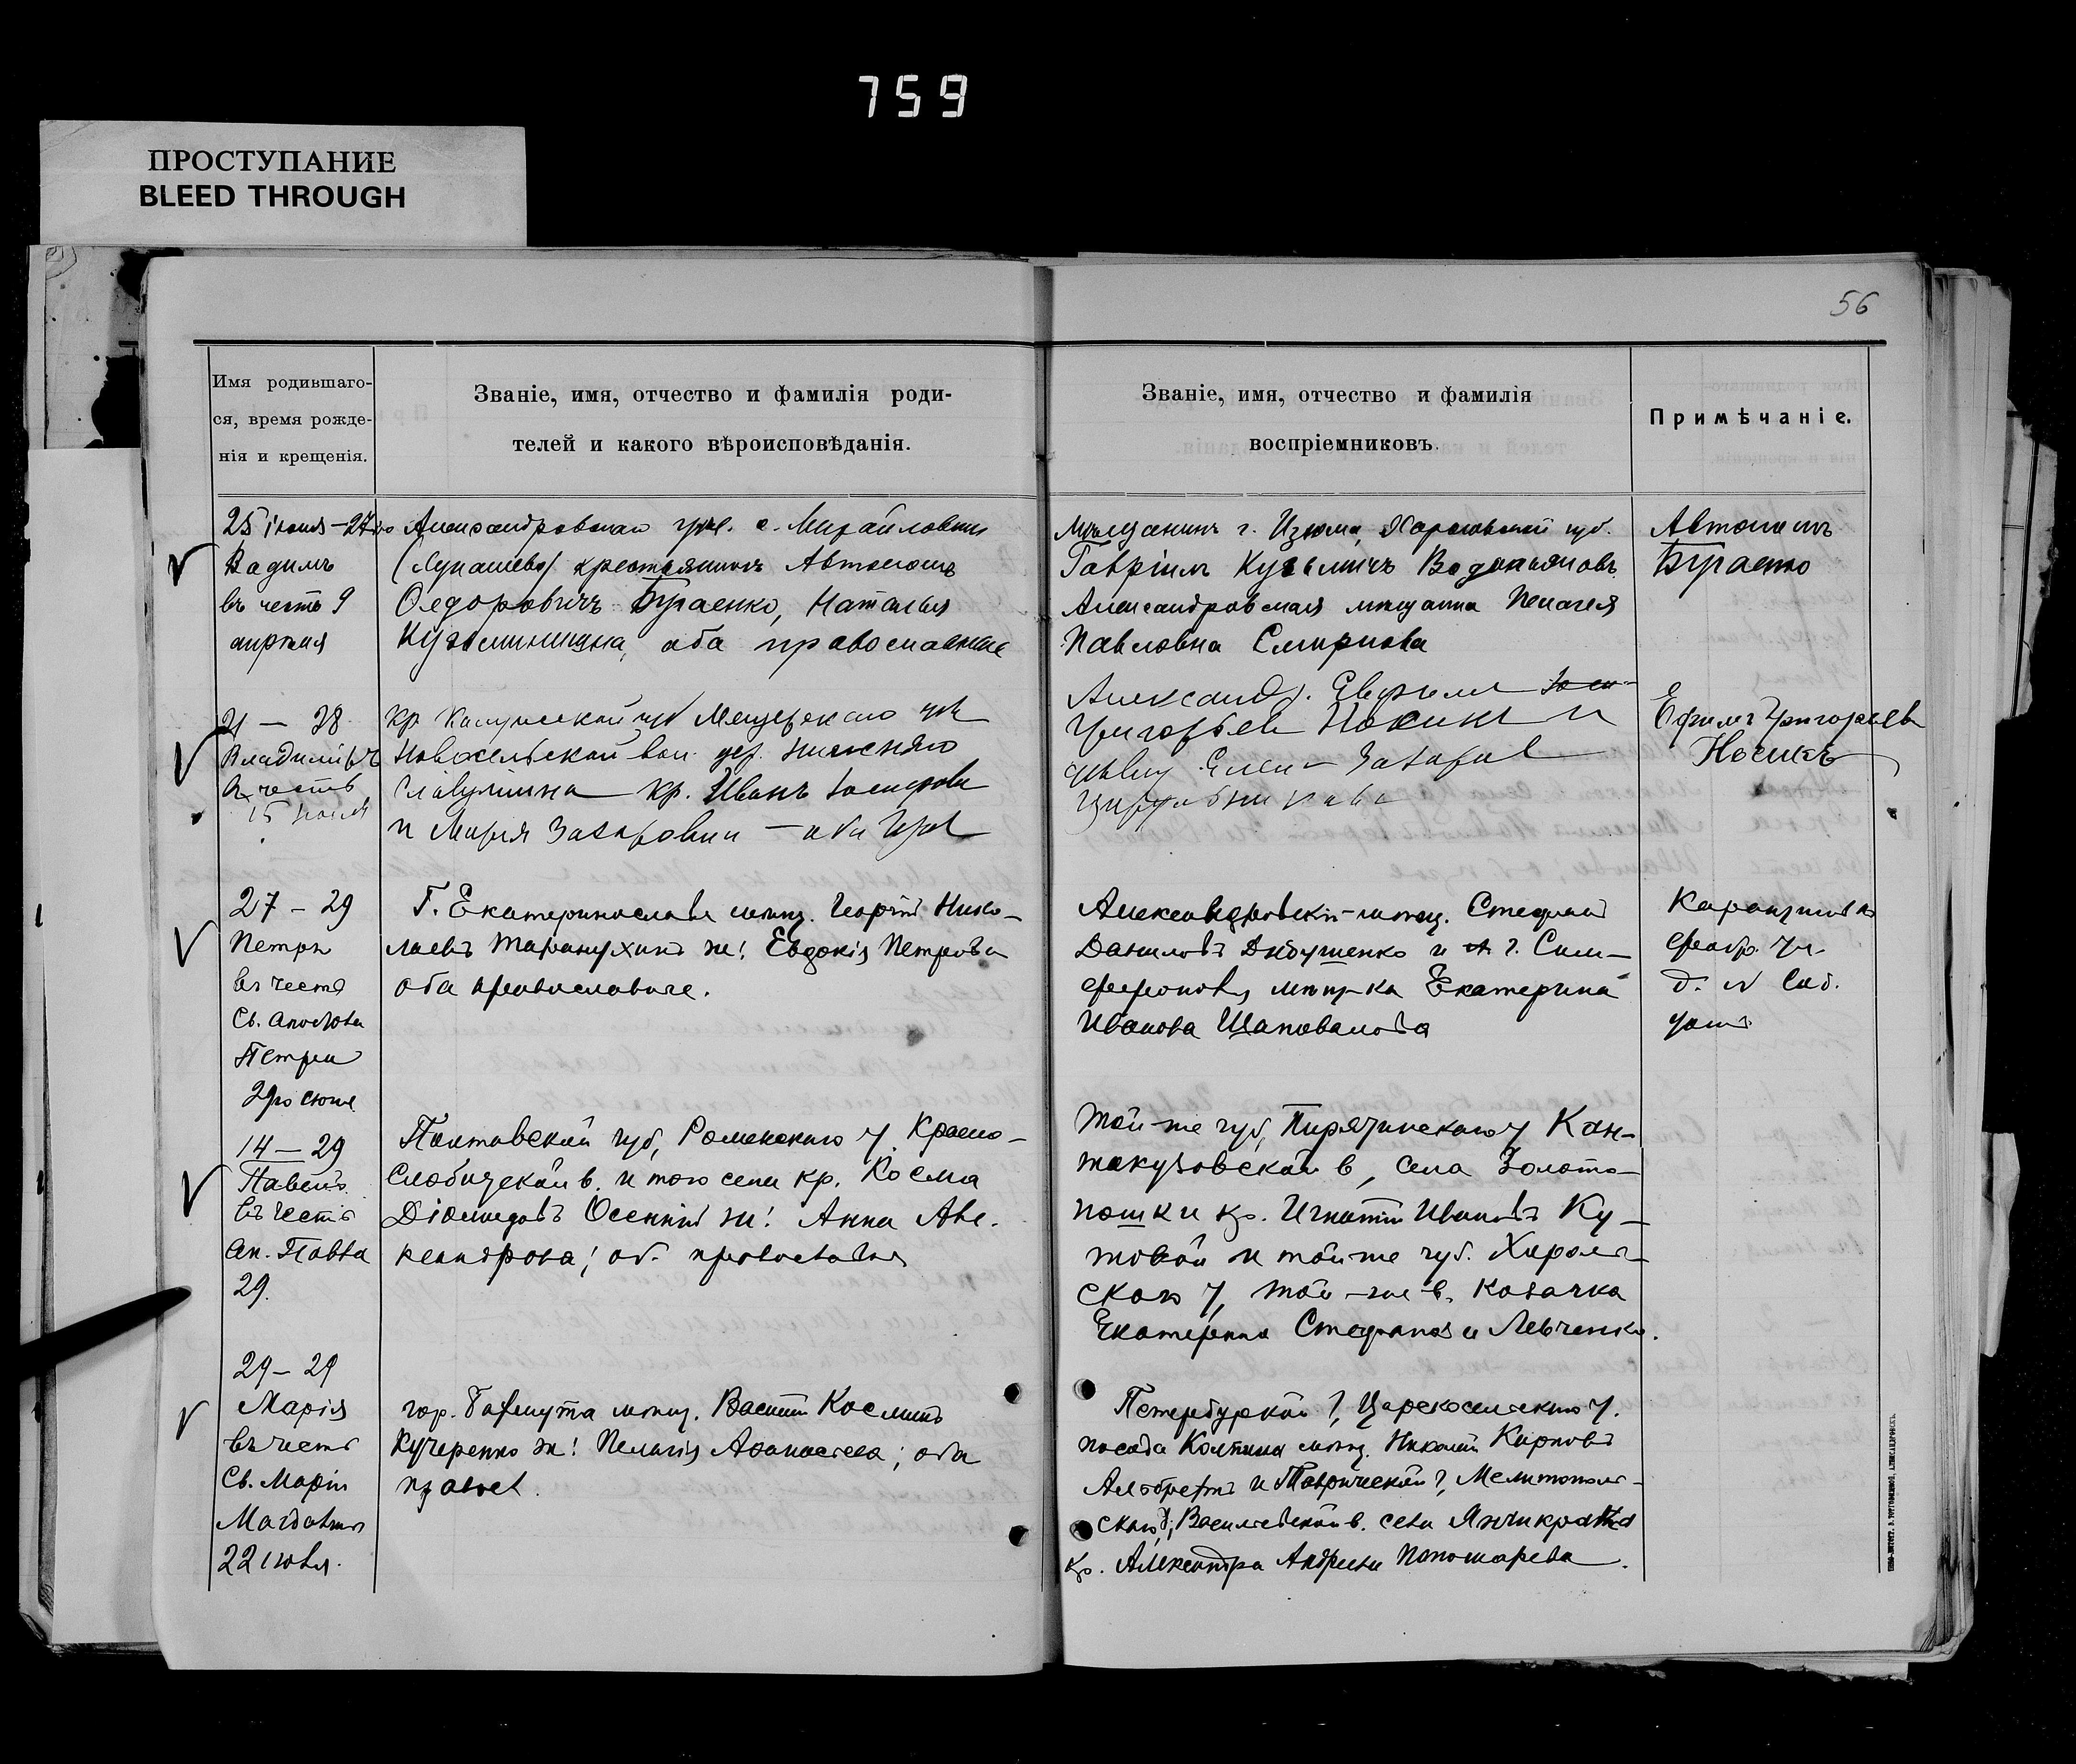 759
ПРОСТУПАНИЕ
BLEED THROUGH
56
Имя родившаго-
ся, время рожде-
нія и крещенія.
Званіе, имя, отчество и фамилія роди-
телей и какого вѣроисповѣданія.
Званіе, имя, отчество и фамилія
воспріемниковъ.
Примѣчаніе.
25 іюня - 27го
Вадимъ
въ честь 9
апрѣля
Александровскаго уѣз. с. Михайловки
(Лукашево) крестьянинъ Автономъ
Ѳедоровичъ Бугаенко, Наталья
Кузьминишна, оба православные
Мѣщанинъ г. Изюма, Харьковской губ.
Гавріилъ Кузьмичъ Водопьяновъ
Александровская мѣщанка Пелагея
Павловна Смирнова
Автономъ
Бугаенко
21 — 28
Владиміръ
въ честь
15 іюля
Кр Калужской губ Мещовскаго
Новосельской вол. дер. Нижняго
кр. Иванъ
и Марія Захаровна — оба прав
Александр.
Григорьев Носикъ и
Елена Захаров
Ефимъ Григорьев
Носикъ
27 - 29
Петръ
въ честь
Св. Апостола
Петра
29го іюня
Г. Екатеринослава мѣщ. Георгій Нико-
лаевъ Таранухинъ ж: Евдокія Петрова
оба православные.
Александровскій мѣщ. Стефанъ
Даниловъ Дибушенко и г. Сим-
ферополя, мѣщ-ка Екатерина
Иванова Шаповалова
14 — 29
Павелъ
въ честь
Ап. Павла
29.
Полтавской губ, Роменскаго у Красно-
слободской в. и того села кр. Косма
Діомидовъ Осенній ж: Анна Але-
ксандрова; об. православн
Той-же губ, Пирятинскаго у Кан-
такузовской в, села Золото-
ношки кр. Игнатій Ивановъ Ку-
товой и той же губ. Хороль-
скаго у, той-же в. козачка
Екатерина Стефанова Левченко.
29 - 29
Марія
въ честь
Св. Маріи
Магдалины
22 іюля.
гор. Бахмута мѣщ. Василій Косминъ
Кучеренко ж: Пелагія Аѳанасіева; оба
правосл.
Петербургской г, Царскосельскаго у.
посада Колпина мѣщ. Николай Карповъ
и Таврической г, Мелитополь-
скаго у, Васильевской в. села Янчикрака
кр. Александра Андреева Пономарева.